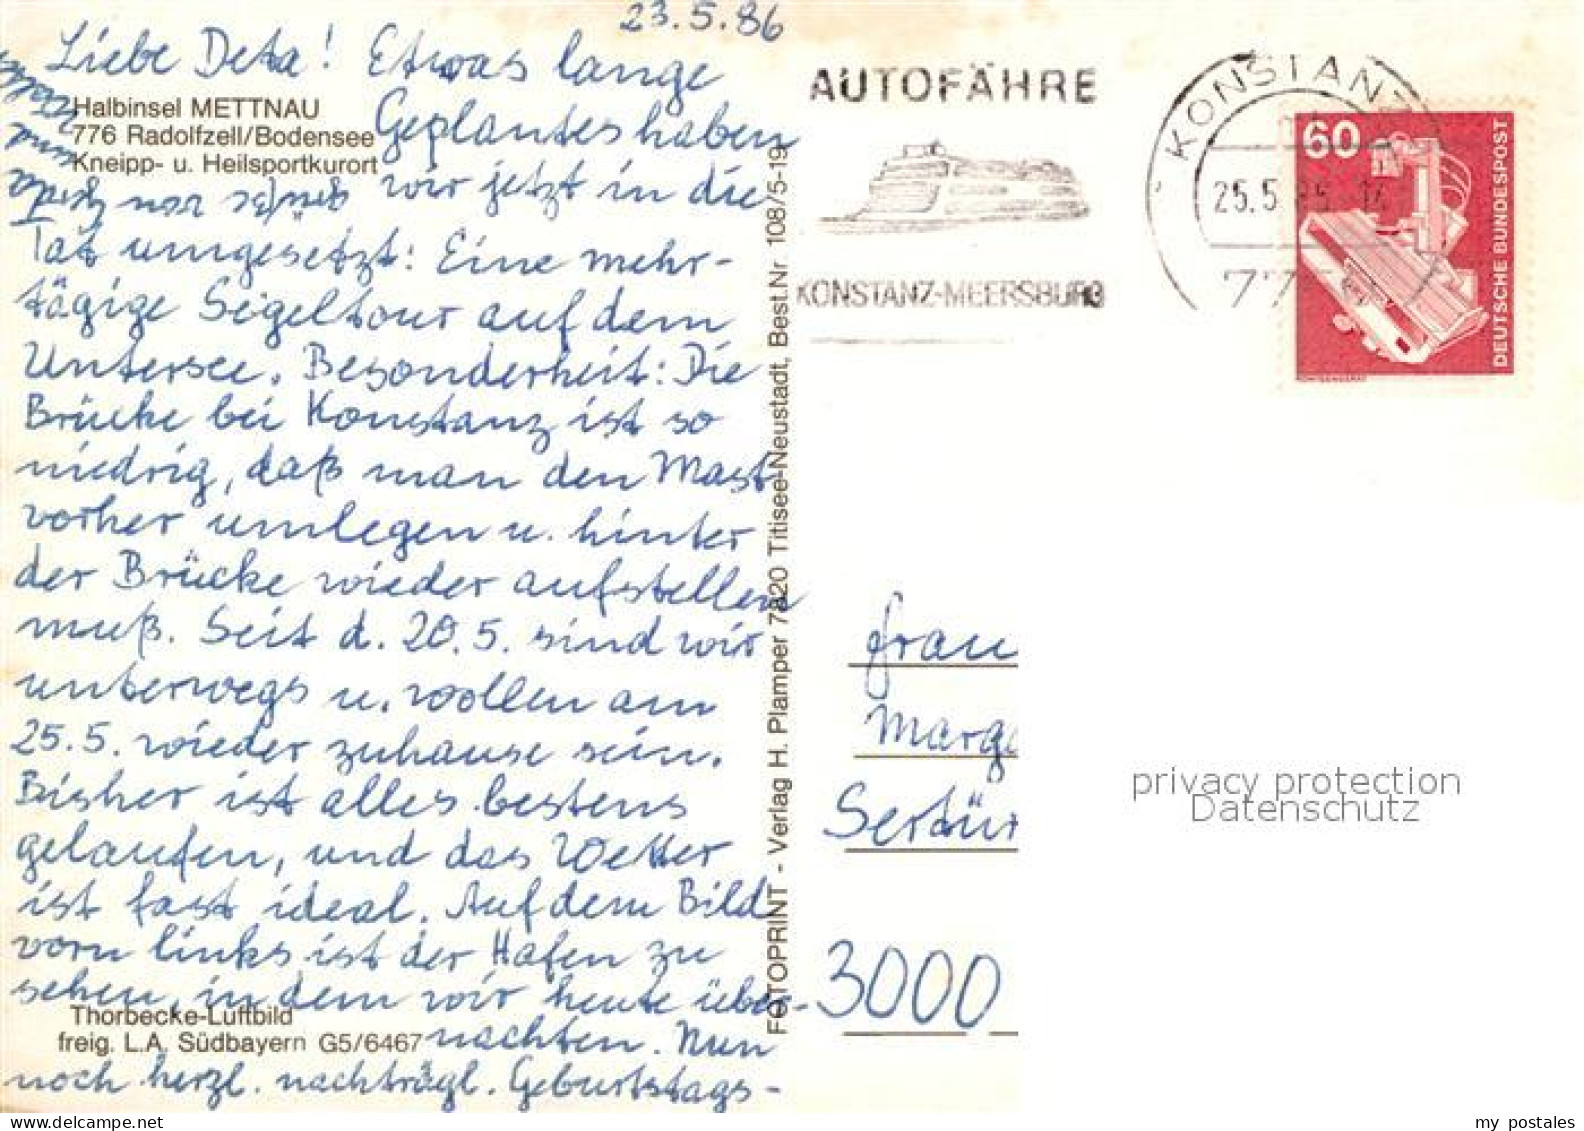 23.5.86
Liebe Deta! Etwas lange
Geplantes haben
wir jetzt in die
Tat umgesetzt: Eine mehr-
tägige Segeltour auf dem
Untersee. Besonderheit: Die
Brücke bei Konstanz ist so
niedrig, daß man den Mast
vorher umlegen u. hinter
der Brücke wieder aufstellen
muß. Seit d. 20.5. sind wir
unterwegs u. wollen am
25.5. wieder zuhause sein.
Bisher ist alles bestens
gelaufen, und das Wetter
ist fast ideal. Auf dem Bild
vorn links ist der Hafen zu
sehen, in dem wir heute über-
nachten. Nun
noch herzl. nachträgl. Geburtstags-
grüße von
und
Halbinsel METTNAU
776 Radolfzell/Bodensee
Kneipp- u. Heilsportkurort
Thorbecke-Luftbild
freig. L.A. Südbayern G5/6467
FOTOPRINT - Verlag H. Plamper 7820 Titisee-Neustadt, Best.Nr 108/5-19
AUTOFÄHRE
KONSTANZ-MEERSBURG
KONSTANZ
25.5.
77
60
DEUTSCHE BUNDESPOST
Frau
Marga
Sertür
3000
privacy protection
Datenschutz
my postales